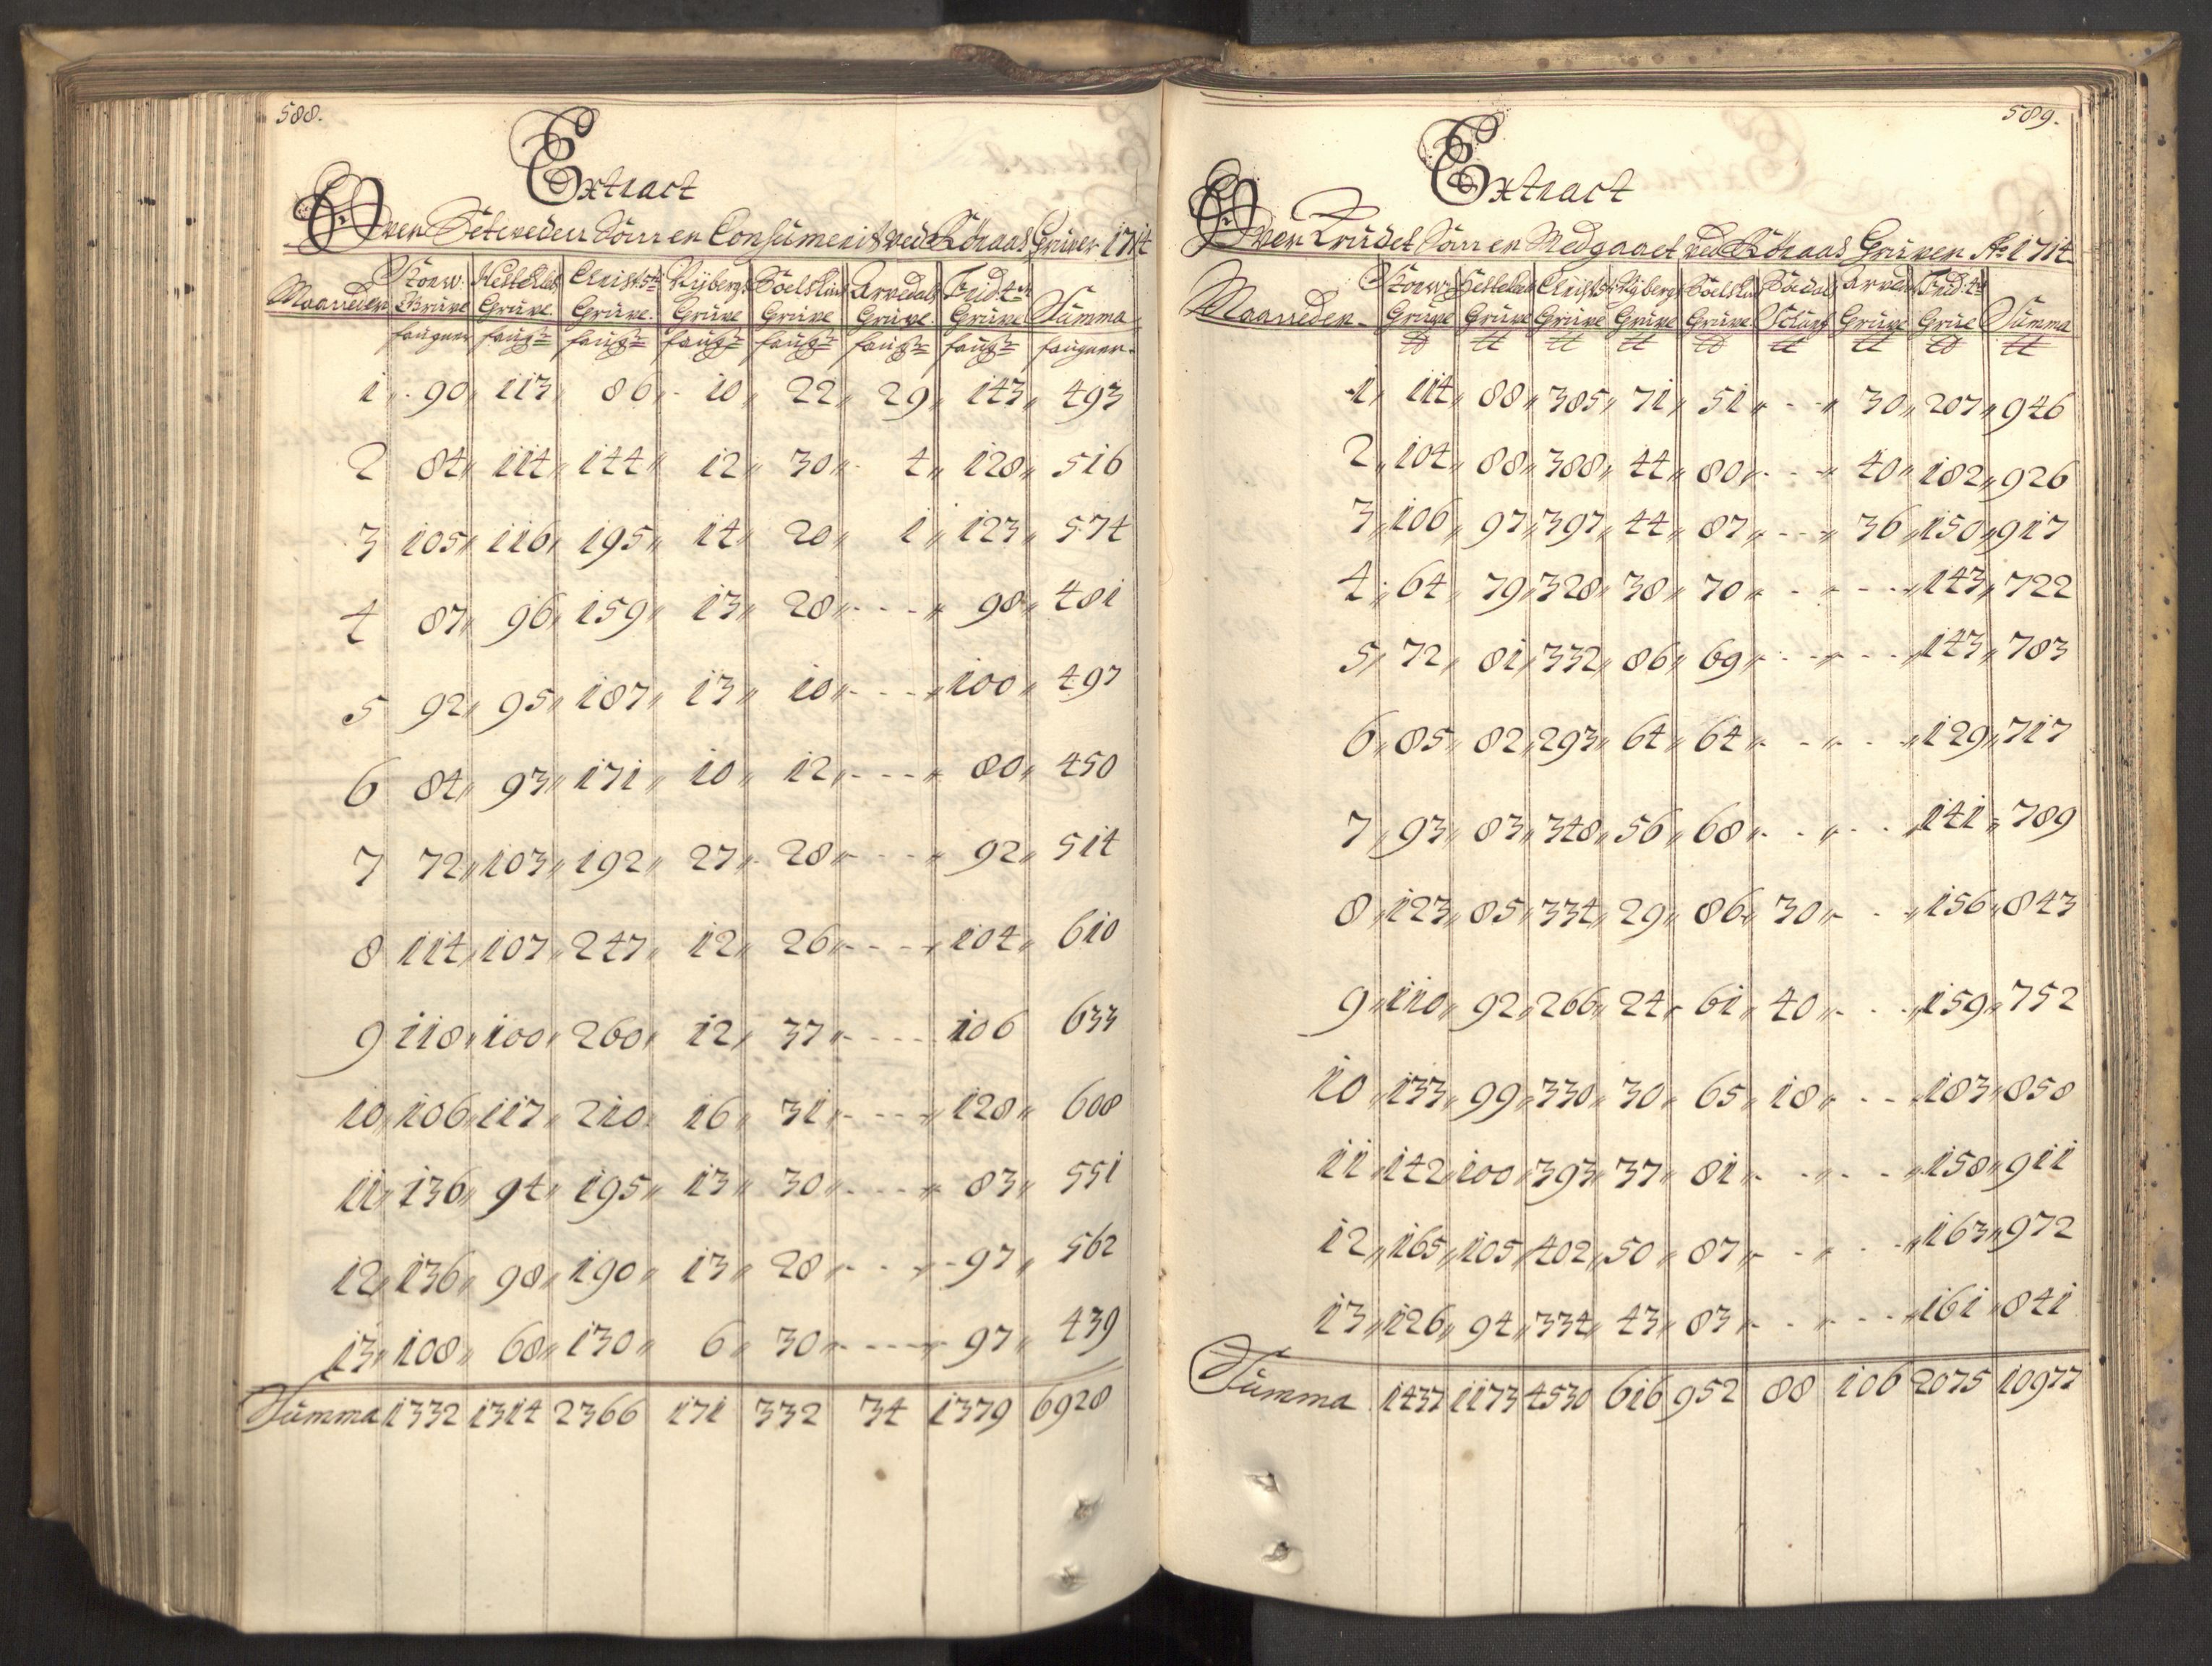 588.
Extract
Over Setveden som er Consumerit ved Röraas Gruver 1714
Maaneder Storw. Grüve Christi 5te Grüve Nÿbergs Grüve Grüve Arvedals Grüve Frid: 4de Grüve Summa
faugner faug: faug: faug: faug: faug: faug: faugner
1 90 113 86 10 22 29 143 493
2 84 114 144 12 30 4 128 516
3 105 116 195 14 20 1 123 574
4 87 96 159 13 28 - - - 98 481
5 92 95 187 13 10 - - - 100 497
6 84 93 171 10 12 - - - 80 450
7 72 103 192 27 28 - - - 92 514
8 114 107 247 12 26 - - - 104 610
9 118 100 260 12 37 - - - 106 633
10 106 117 210 16 31 - - - 128 608
11 136 94 195 13 30 - - - 83 551
12 136 98 190 13 28 - - - 97 562
13 108 68 130 6 30 - - - 97 439
Summa 1332 1314 2366 171 332 34 1379 6928
589.
Extract
Over Krudet som er Medgaaet ved Röraas Gruver Ao 1714
Maaneder Storw: Grüve Grüve Christi Grüve Nÿbergs Grüve Grüve Arved Grüve Frid: 4de Grüve Summa
℔ ℔ ℔ ℔ ℔ ℔ ℔ ℔ ℔
1 114 88 385 71 51 - - 30 207 946
2 104 88 388 44 80 - - 40 182 926
3 106 97 397 44 87 - - 36 150 917
4 64 79 328 38 70 - - - - 143 722
5 72 81 332 86 69 - - - - 143 783
6 85 82 293 64 64 - - - - 129 717
7 93 83 348 56 68 - - - - 141 789
8 123 85 334 29 86 30 - - 156 843
9 110 92 266 24 61 40 - - 159 752
10 133 99 330 30 65 18 - - 183 858
11 142 100 393 37 81 - - - - 158 911
12 165 105 402 50 87 - - - - 163 972
13 126 94 334 43 83 - - - - 161 841
Summa 1437 1173 4530 616 952 88 106 2075 10977